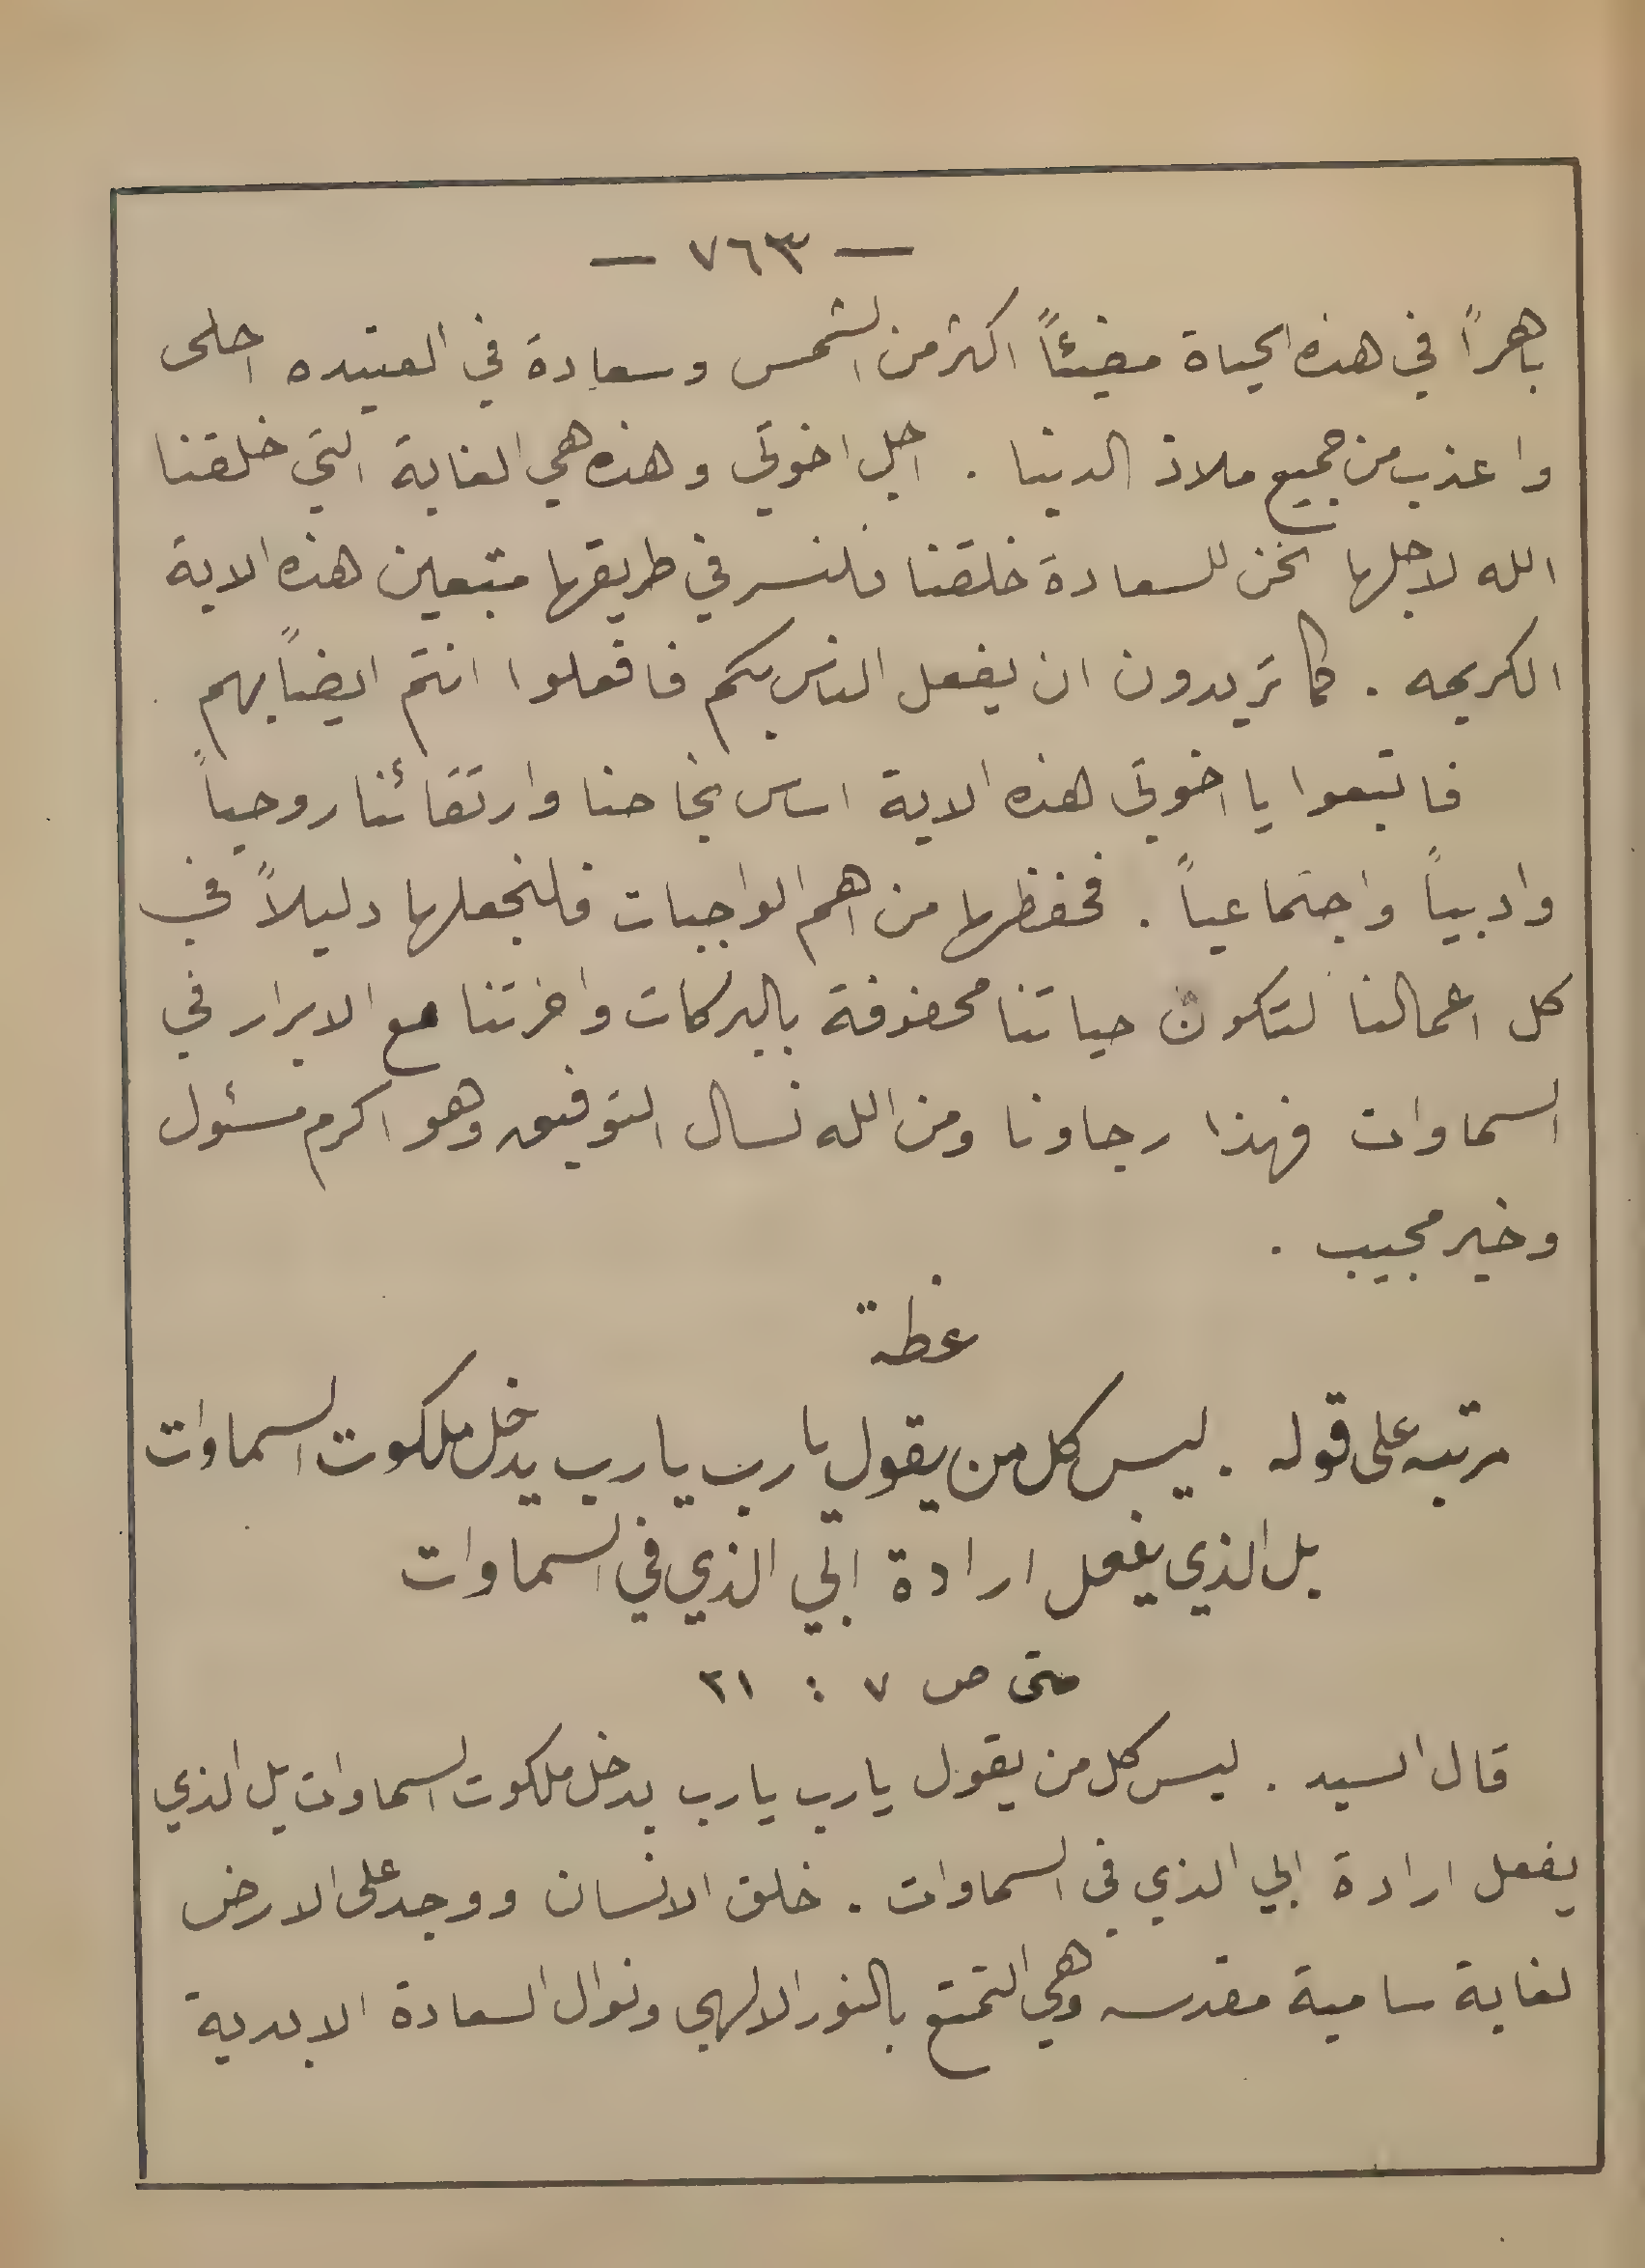 — ٧٦٣ —
باهراً في هذه الحياة مضيئاً اكثر من الشمس وسعادة في العتيده احلى
واعذب من جميع ملاذ الدينا . اجل اخوتي وهذه هي الغاية التي خلقنا
الله لاجلها نحن للسعادة خلقنا فلنسر في طريقها متبعين هذه الاية
الكريمه . كما تريدون ان يفعل الناس بكم فافعلوا انتم ايضاً بهم
فاتبعوا يا اخوتي هذه الاية اساس نجاحنا وارتقائنا روحياً
وادبياً واجتماعياً . فحفظها من اهم الواجبات فلنجعلها دليلاً في
كل اعمالنا لتكون حياتنا محفوفة بالبركات واخرتنا مع الابرار في
السماوات فهذا رجاونا ومن الله نسال التوفيق وهو اكرم مسئول
وخير مجيب .
عظة
مرتبه على قوله . ليس كل من يقول يارب يارب يدخل ملكوت السماوات
بل الذي يفعل ارادة ابي الذي في السماوات
متى ص ٧ : ٢١
قال السيد . ليس كل من يقول يارب يارب يدخل ملكوت السماوات بل الذي
يفعل ارادة ابي الذي في السماوات . خلق الانسان ووجد على الارض
لغاية سامية مقدسه وهي التمتع بالنور الالهي ونوال السعادة الابدية